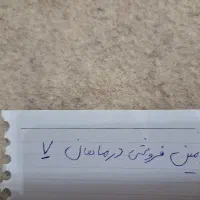 مین فروشی در ماهان ۷